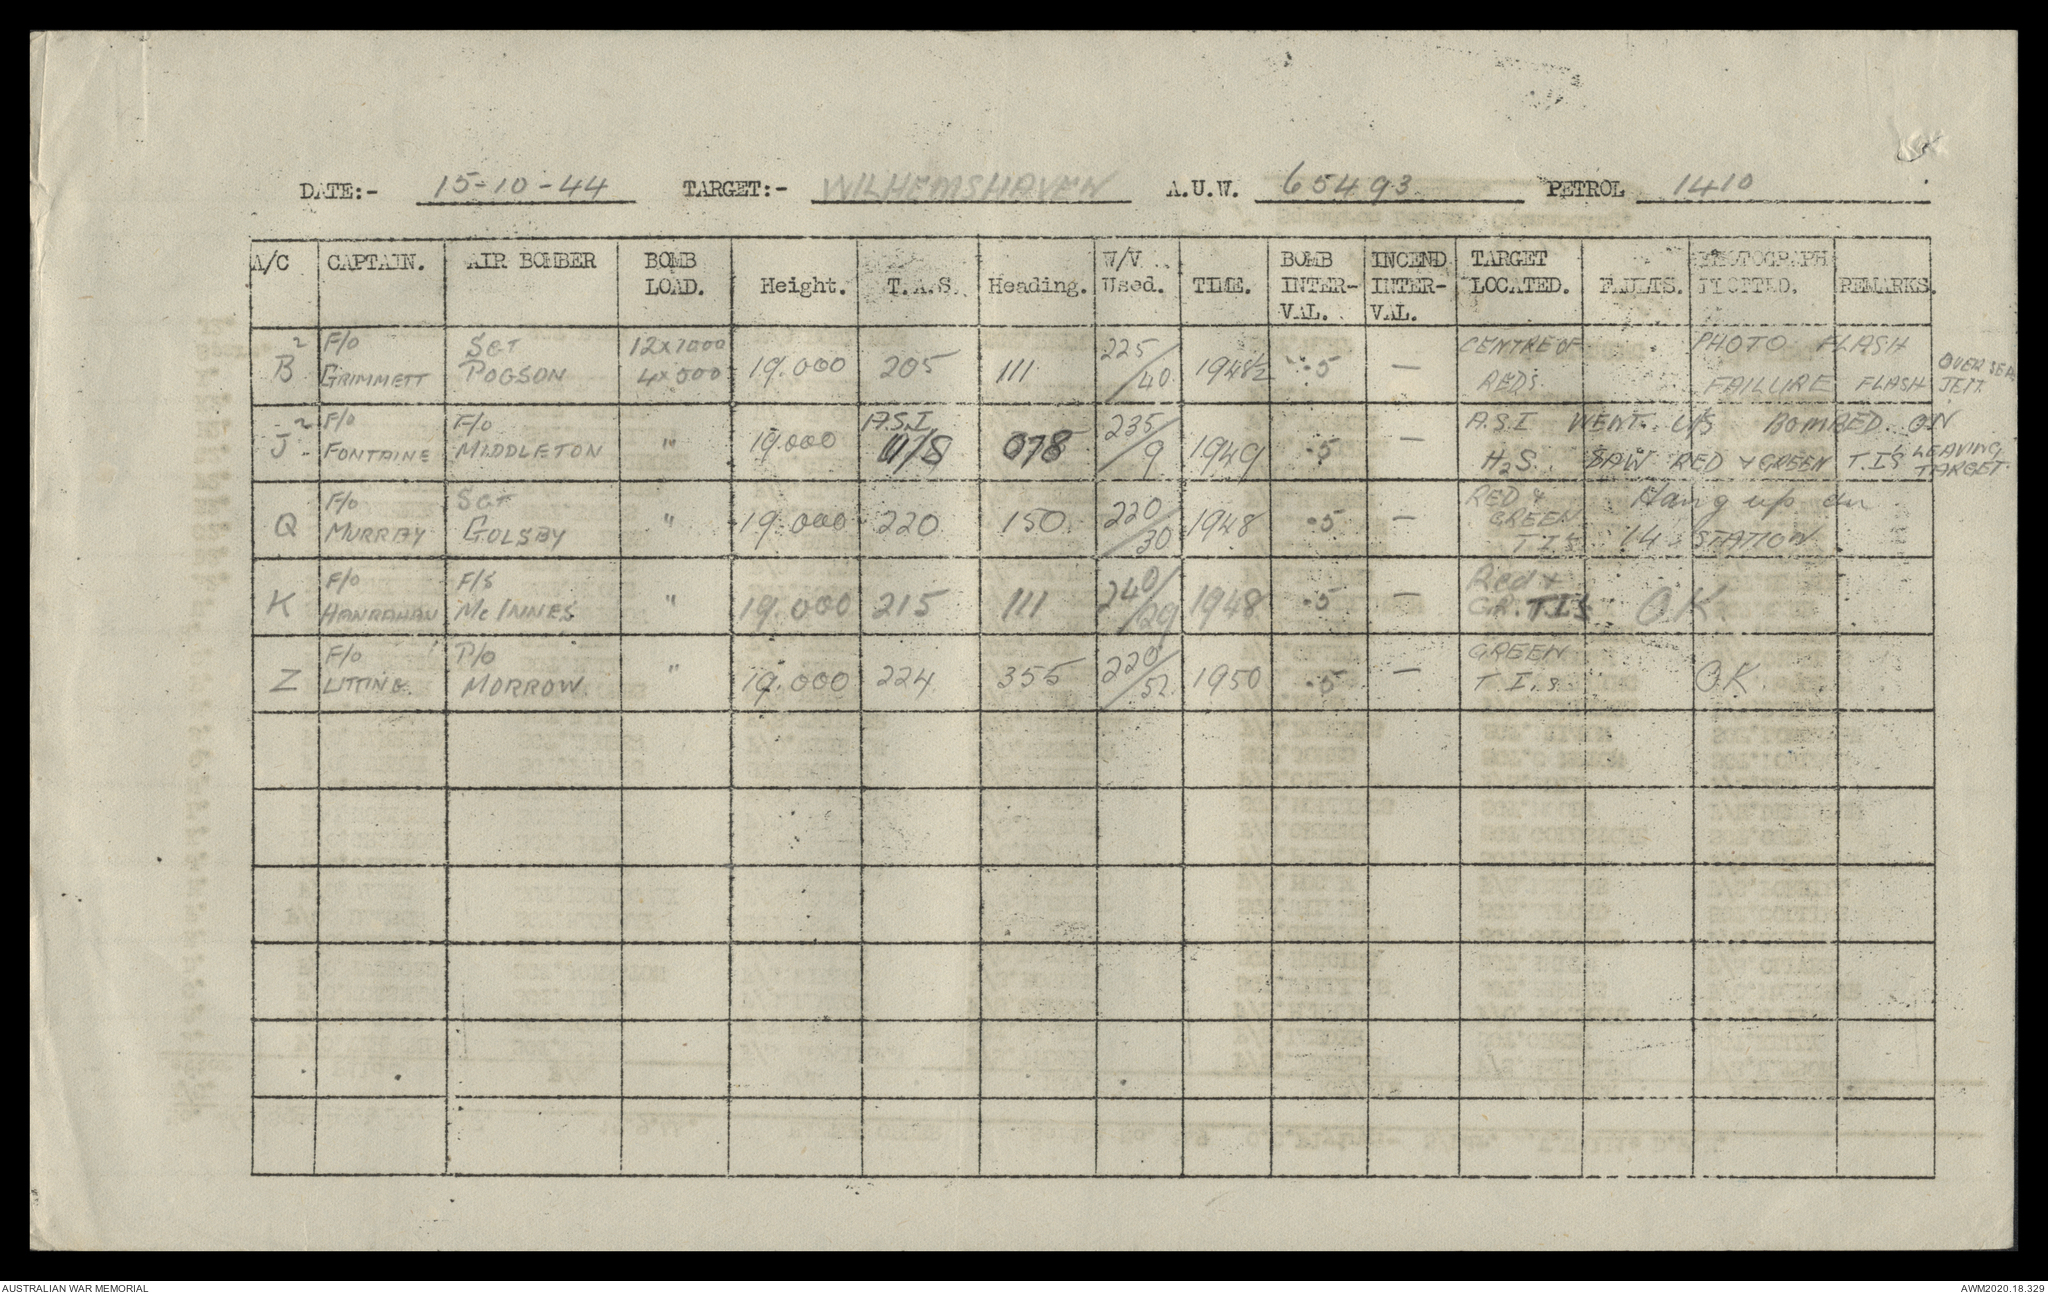 DATE:- 15-10-44 TARGET:- WILHEMSHAVEN A.U.W. 65493 PETROL 1410
A/C CAPTAIN. AIR BOMBER BOMB LOAD. Height. T.A.S. Heading. W/V Used. TIME. BOMB INTER-VAL. INCEND INTER-VAL. TARGET LOCATED. FAULTS. PHOTOGRAPH PLOTTED. REMARKS.
B² F/O GRIMMETT SGT POGSON 12x1000 4x500 19.000 205 111 225/40 1948½ .5 — CENTRE OF REDS PHOTO FLASH FAILURE FLASH JETT. OVER SEA
J² F/O FONTAINE F/O MIDDLETON " 19.000 A.S.I. U/S 078 235/9 1949 .5 — A.S.I WENT U/S BOMBED ON H2S. SAW RED & GREEN T.I'S LEAVING TARGET.
Q F/O MURRAY SGT GOLSBY " 19.000 220 150 220/30 1948 .5 — RED & GREEN T.I.S Hang up on 14 STATION
K F/O HANRAHAN F/S McINNES " 19.000 215 111 240/29 1948 .5 — Red & GR. T.I.S O.K.
Z F/O LITTING P/O MORROW " 19.000 224 355 220/52 1950 .5 — GREEN T.I.s O.K.
AUSTRALIAN WAR MEMORIAL AWM2020.18.329